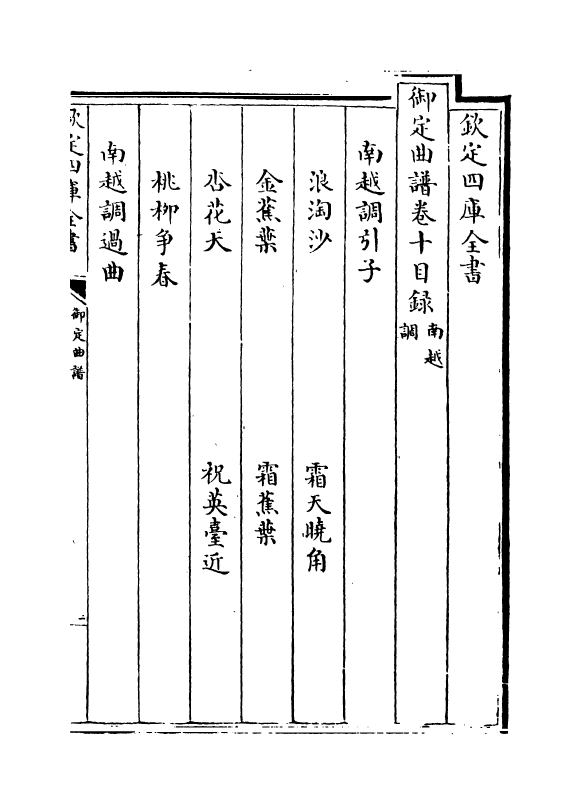 欽定四庫全書
御定曲譜卷十目録 南越調
南越調引子
浪淘沙 霜天曉角
金蕉葉 霜蕉葉
杏花天 祝英臺近
桃柳争春
南越調過曲
欽定四庫全書 御定曲譜 一